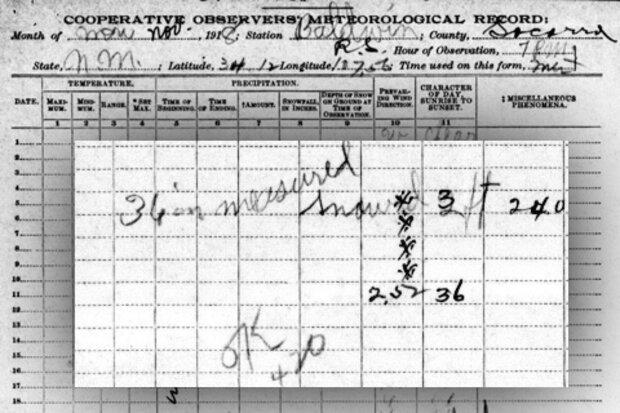 COOPERATIVE OBSERVERS' METEOROLOGICAL RECORD:
Month of Nov. 1918; Station Baldwin; County, Socorro
R.S. Hour of Observation,
State, N.M.; Latitude, 34 12 Longitude, 10756 Time used on this form,
TEMPERATURE. PRECIPITATION.
DATE. MAXI-MUM. MINI-MUM. RANGE. *SET MAX. TIME OF BEGINNING. TIME OF ENDING. †AMOUNT. SNOWFALL, IN INCHES. DEPTH OF SNOW ON GROUND AT TIME OF OBSERVATION. PREVAIL-ING WIND DIRECTION. CHARACTER OF DAY, SUNRISE TO SUNSET. ‡ MISCELLANEOUS PHENOMENA.
1 2 3 4 5 6 7 8 9 10 11
1
2
3
4
5
6
7
8
9
10
11
12
13
14
15
16
17
18
36 in measured Snowed 3 ft 240
2.52 36
OK